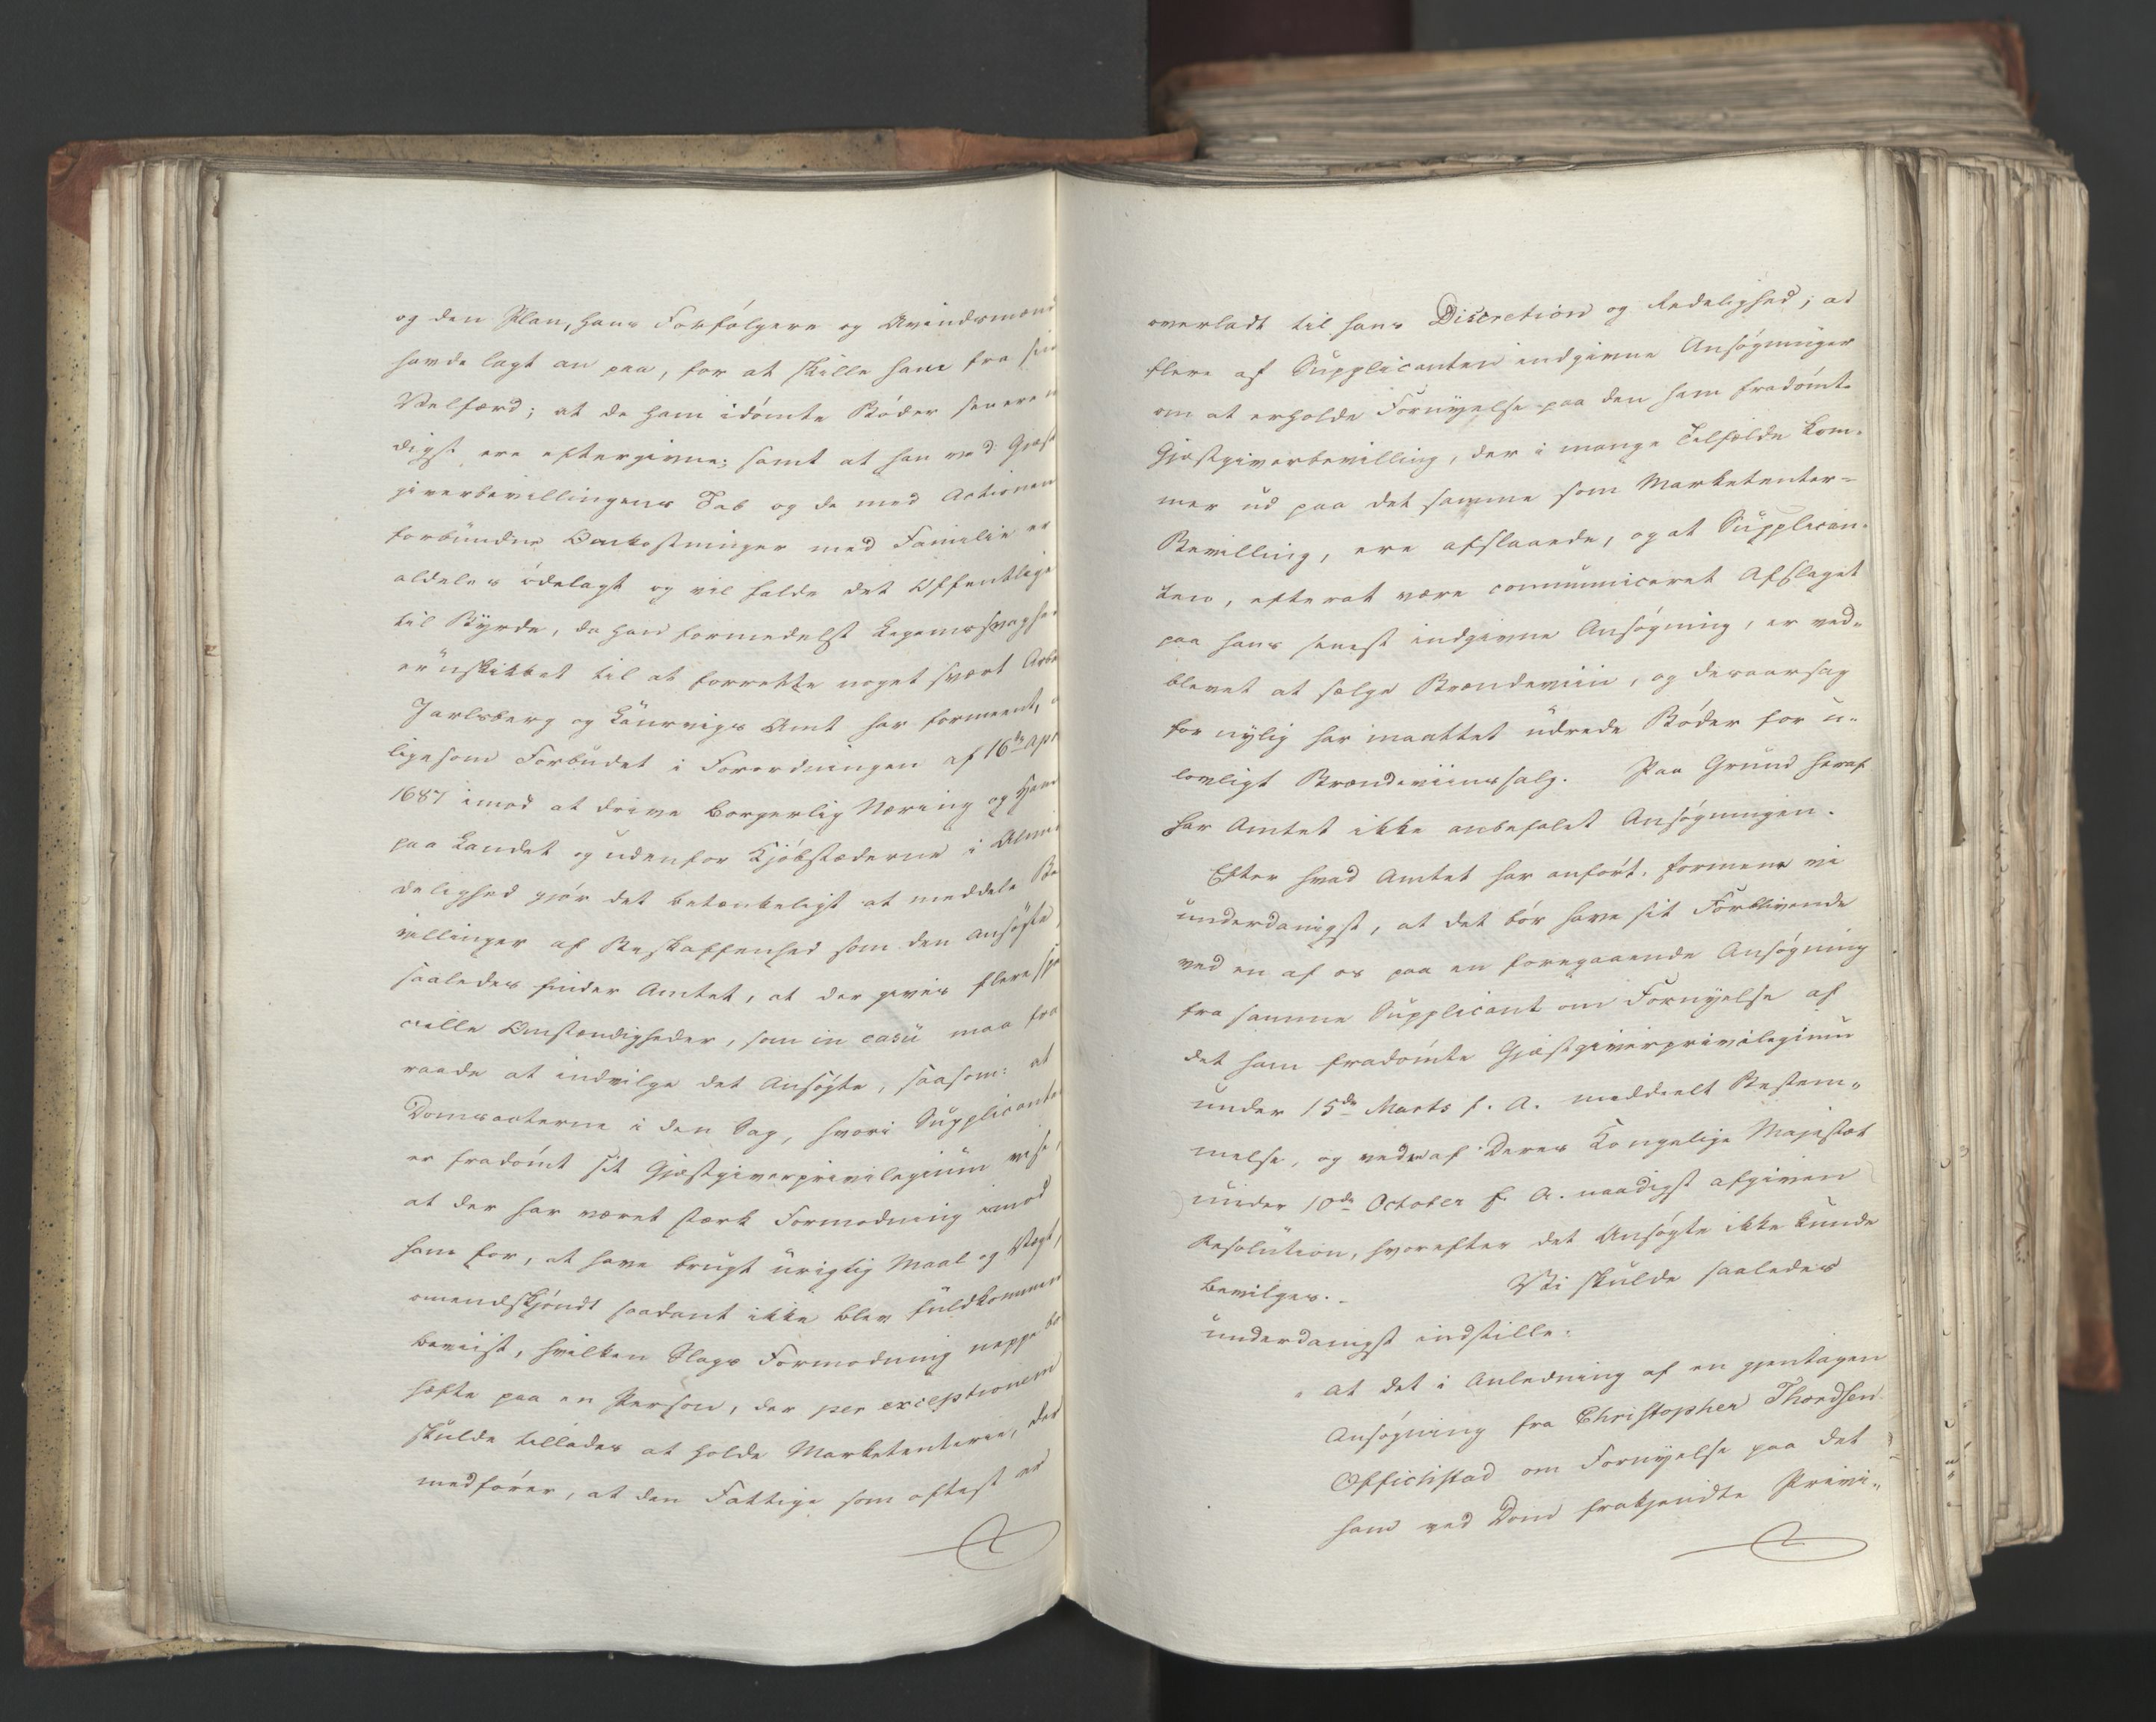 og den Plan, hans Forfølgere og Avindsmænd
havde lagt an paa, for at skille ham fra sin
Velfærd; at de ham idømte Bøder senere n
digst ere eftergivne; samt at han ved Gjæst
giverbevillingens Tab og de med Actionen
forbundne Omkostninger med Familie er
aldeles ødelagt og vil falde det Offentlige
til Byrde, da han formedelst Legemssvaghed
er uskikket til at forrette noget svært Arbe
Jarlsberg og Laurvigs Amt har formeent,
ligesom Forbudet i Forordningen af 16de Apr
1687 imod at drive borgerlig Næring og Han
paa Landet og udenfor Kjøbstæderne i Almi
delighed gjør det betænkeligt at meddele Be
villinger af Beskaffenhed som den ansøgte,
saaledes finder Amtet, at der gives flere spe
cielle Omstændigheder, som in casu maa fra
raade at indvilge det Ansøgte, saasom: at
Domsacterne i den Sag, hvori Supplicanten
er fradømt sit Gjæstgiverprivilegium vise,
at der har været stærk Formodning imod
ham for, at have brugt urigtig Maal og Vægt,
omendskjøndt saadant ikke blev fuldkommen
beviist, hvilken Slags Formodning neppe bø
hæfte paa en Person, der per exceptionem
skulde tillades at holde Marketenterie, der
medfører, at den Fattige som oftest er
overladt til hans Discretion og Redelighed; at
flere af Supplicanten indgivne Ansøgninger
om at erholde Fornyelse paa den ham fradømte
Gjæstgiverbevilling, der i mange Tilfælde kom-
mer ud paa det samme som Marketenter-
Bevilling, ere afslaaede, og at Supplican-
ten, efterat være communiceret Afslaget
paa hans senest indgivne Ansøgning, er ved-
blevet at sælge Brændeviin, og desaarsag
for nylig har maattet udrede Bøder for u-
lovligt Brændeviinssalg. Paa Grund heraf
har Amtet ikke anbefalet Ansøgningen.
Efter hvad Amtet har anført, formene vi
underdanigst, at det bør have sit Forblivende
ved en af os paa en foregaaende Ansøgning
fra samme Supplicant om Fornyelse af
det ham fradømte Gjæstgiverprivilegium
under 15de Marts f. A. meddeelt Bestem-
melse, og ved en af Deres Kongelige Majestæt
under 10de October f. A. naadigst afgiven
Resolution, hvorefter det Ansøgte ikke kunde
bevilges. Vi skulde saaledes
underdanigst indstille:
" at det i Anledning af en gjentagen
Ansøgning fra Christopher Thordsen
om Fornyelse paa det
ham ved Dom frakjendte Privi-